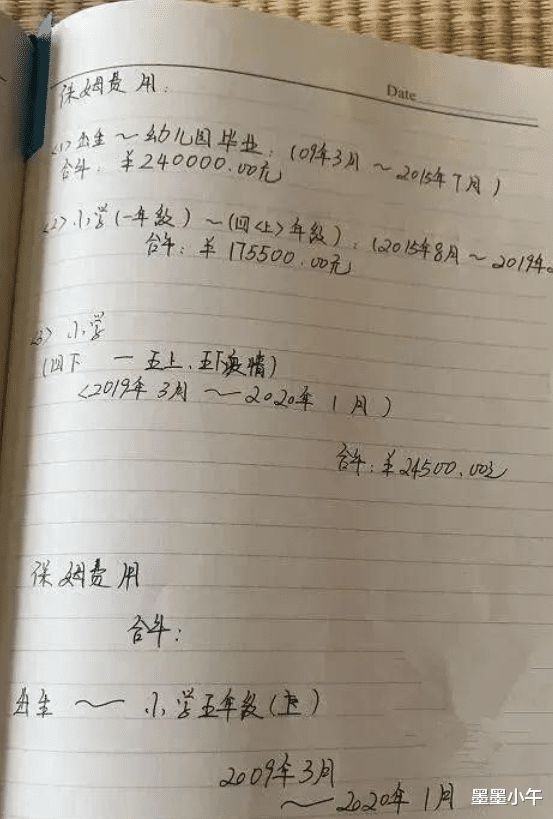 Date
保姆费用:
<1> 出生～幼儿园毕业:(09年3月～2015年7月)
合计:¥240000.00元
<2> 小学(一年级)～(四<上>年级):(2015年8月～2019年
合计:¥175500.00元
<3> 小学
(四下 一 五上、五下疫情)
<2019年3月～2020年1月)
合计:¥24500.00元
保姆费用
合计:
出生～小学五年级(上)
2009年3月
～2020年1月
墨墨小午